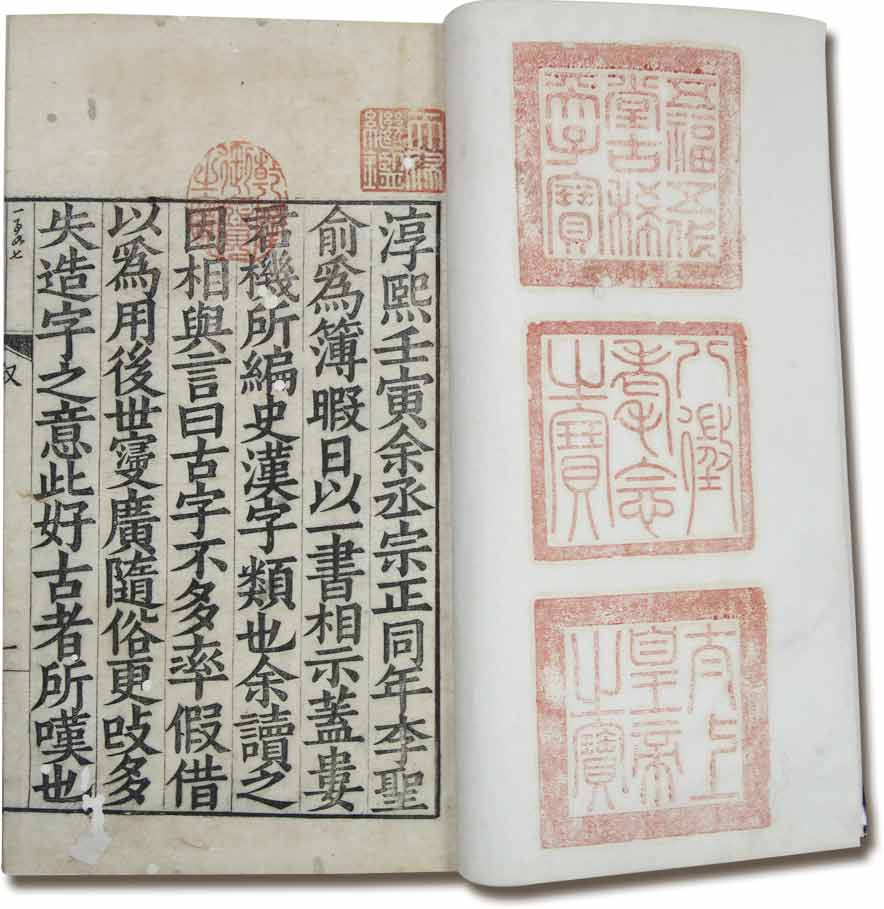 五福五代
堂古稀
天子寶
八徵
耄念
之寶
太上
皇帝
之寶
天祿
繼鑑
乾隆
御覽
之寶
淳熙壬寅余丞宗正同年李聖
俞爲簿暇日以一書相示蓋婁
君機所編史漢字類也余讀之
因相與言曰古字不多率假借
以爲用後世寖廣隨俗更攺多
失造字之意此好古者所嘆也
一